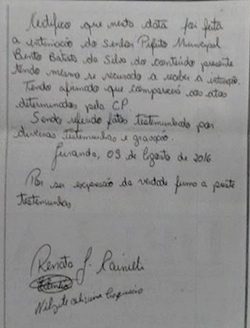 Certifico que nesta data foi feita
a intimação do Senhor Prefeito Municipal
Bento Batista da Silva do conteúdo presente
tendo mesmo se recusado a receber a intimação.
Tendo afirmado que compareceu aos atos
determinados pela CP
Sendo referido fatos testemunhado por
diversas testemunhas e gravação.
09 de Agosto de 2016
Por ser expressão da verdade firmo a parte
testemunhas
Renato J.